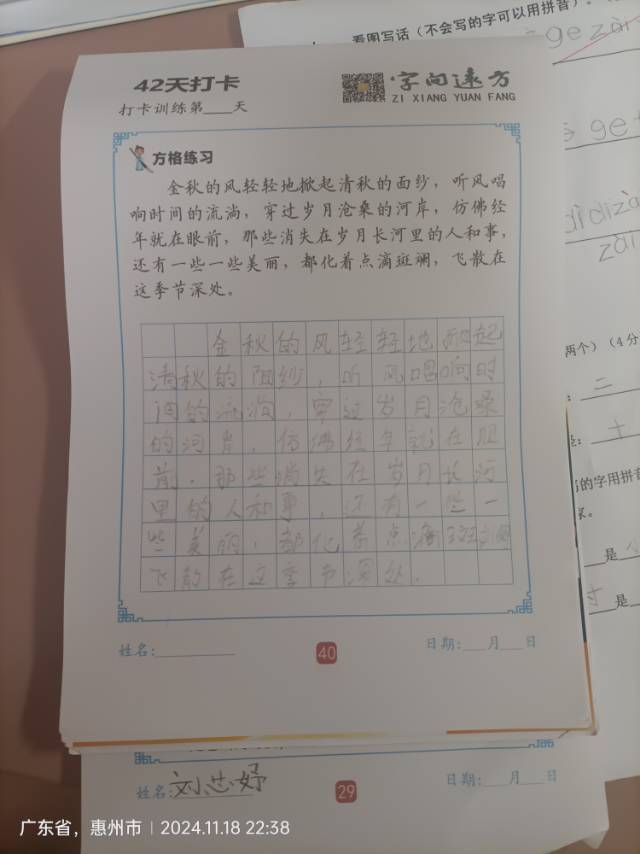 看图写话（不会写的字可以用拼音）.
ge zài
ge
dìdi zà
zài
42天打卡
字向远方
ZI XIANG YUAN FANG
打卡训练第___天
方格练习
金秋的风轻轻地掀起清秋的面纱，听风唱
响时间的流淌，穿过岁月沧桑的河岸，仿佛经
年就在眼前，那些消失在岁月长河里的人和事，
还有一些一些美丽，都化着点滴斑斓，飞散在
这季节深处。
金秋的风轻轻地掀起
清秋的面纱，听风唱响时
间的流淌，穿过岁月沧桑
的河岸，仿佛经年就在眼
前，那些消失在岁月长河
里的人和事，还有一些一
些美丽，都化着点滴斑斓
飞散在这季节深处.
姓名:
40
日期:___月___日
两个）（4分
二
十
的字用拼音
是
是
姓名:刘芯妤
29
日期:___月___日
广东省，惠州市 | 2024.11.18 22:38